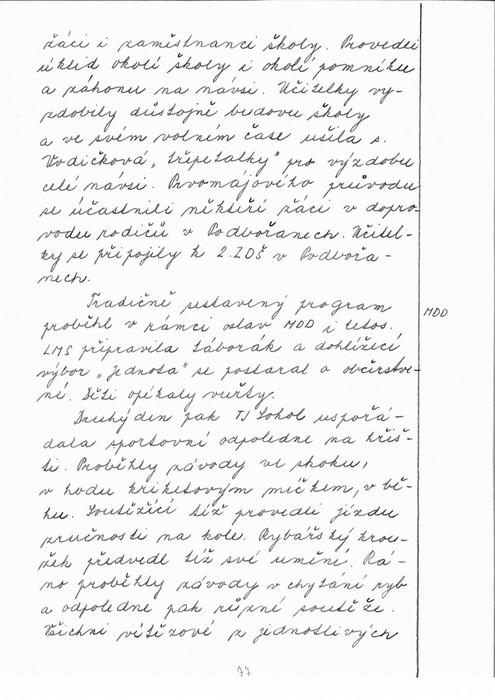 žáci i zaměstnanci školy. Provedli
úklid okolí školy i okolí pomníku
a záhonu na návsi. Učitelky vy-
zdobily důstojně budovu školy
a ve svém volném čase ušila s.
Vodičková „třepetalky" pro výzdobu
celé návsi. Prvomájového průvodu
se účastnili někteří žáci v dopro-
vodu rodičů v Podbořanech. Učitel-
ky se připojily k 2. ZDŠ v Podbořa-
nech.
Tradičně sestavený program
proběhl v rámci oslav MDD i letos.
MDD
LMS připravila táborák a dohlížecí
výbor „Jednota" se postaral o občerstve-
ní. Děti opékaly vuřty.
Druhý den pak TJ Sokol uspořá-
dala sportovní odpoledne na hřiš-
ti. Proběhly závody ve skoku,
v hodu kriketovým míčkem, v bě-
hu. Soutěžící též provedli jízdu
zručnosti na kole. Rybářský krou-
žek předvedl též své umění. Rá-
no proběhly závody v chytání ryb
a odpoledne pak různé soutěže.
Všichni vítězové z jednotlivých
77